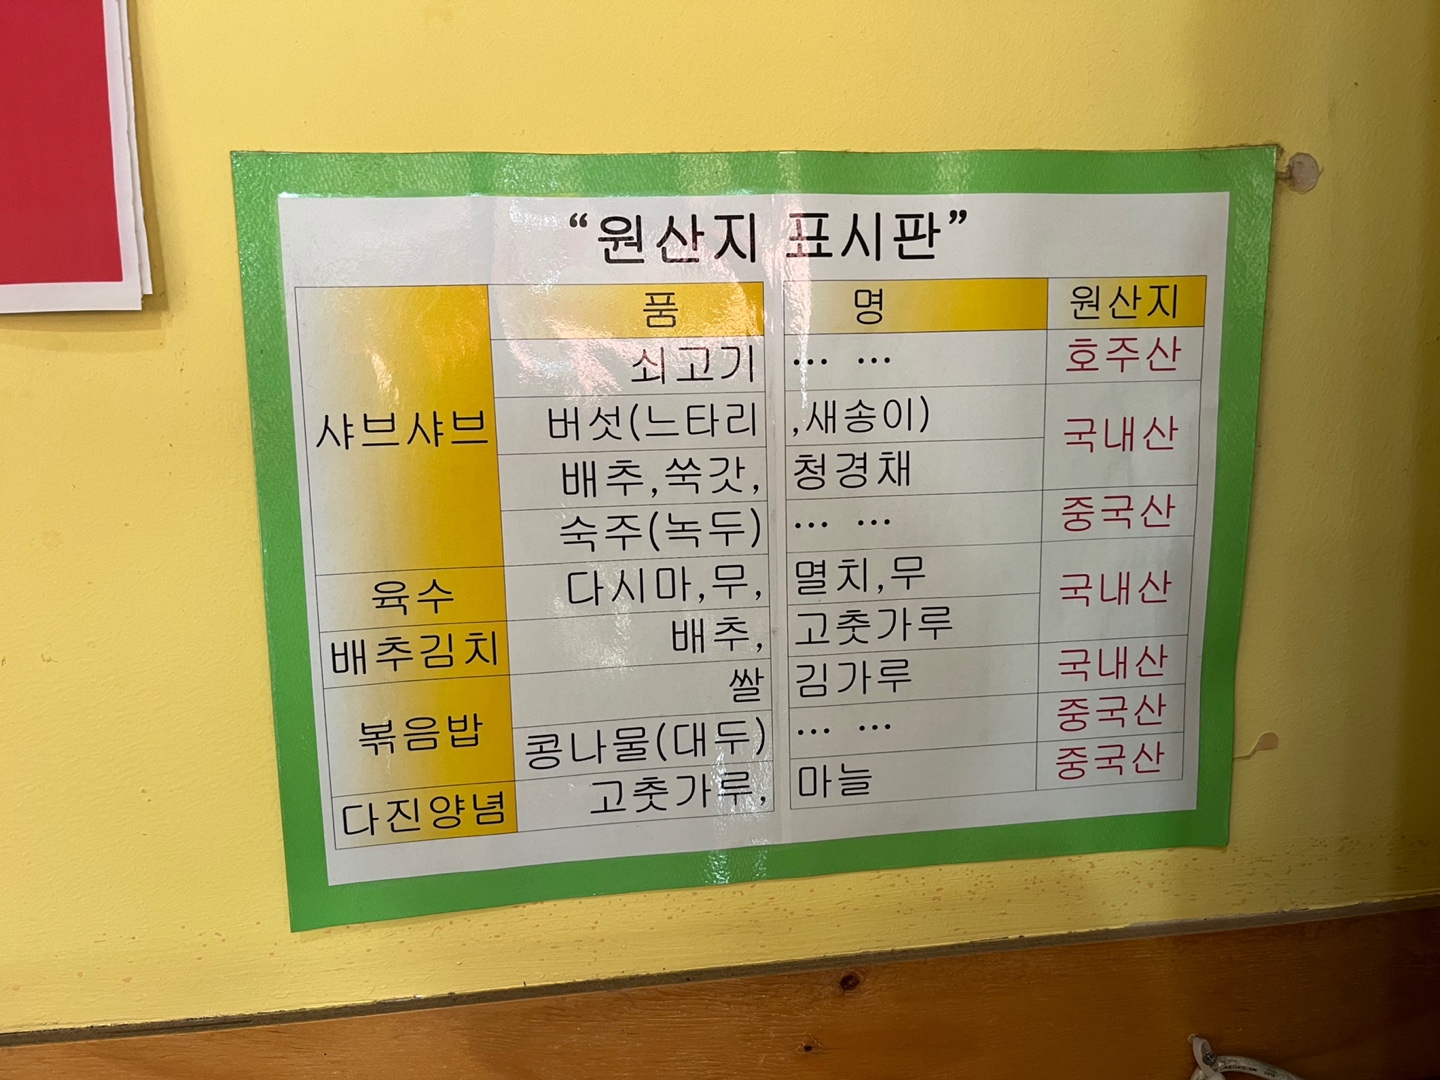 “원산지 표시판”
품 명 원산지
샤브샤브 쇠고기 … … 호주산
버섯(느타리,새송이) 국내산
배추,쑥갓,청경채
숙주(녹두) … … 중국산
육수 다시마,무,멸치,무 국내산
배추김치 배추,고춧가루
볶음밥 쌀 김가루 국내산
콩나물(대두) … … 중국산
다진양념 고춧가루,마늘 중국산